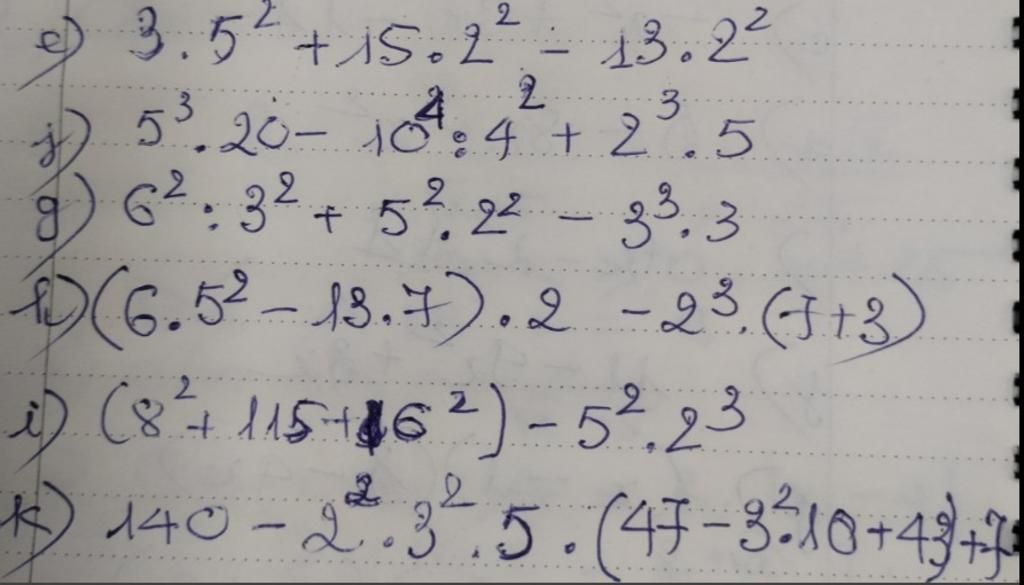 e) 3.5² + 15.2² - 13.2²
f) 5³.20 - 10⁴:4² + 2³.5
g) 6² : 3² + 5².2² - 3³.3
h) (6.5² - 13.7).2 - 2³.(7+3)
i) (8² + 115 + 16²) - 5².2³
k) 140 - 2².3².5.(47 - 3².10 + 43) + 7